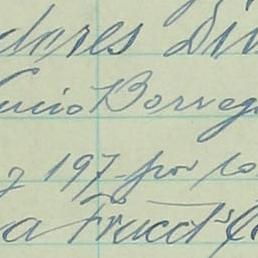 dores Di
Lucio Borreg
y 197 por lo
a Fracct^s